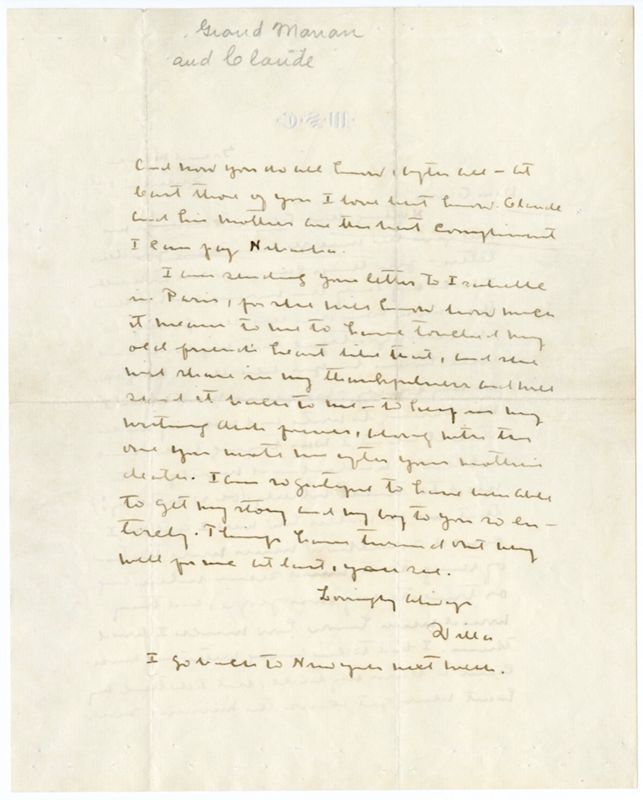 Grand Manan
and Claude
And now you do all know, after all - at
least those of you I love best know. Claude
and his mother are the best compliment
I can pay Nebraska.
I am sending your letter to Isabelle
in Paris, for she will know how much
it means to me to have touched my
old friend's heart like that, and she
will share in my thankfulness and will
send it back to me - to keep in my
writing desk forever, along with the
one you wrote me after your mother's
death. I am so grateful to have been able
to get my story and my boy to you so en-
tirely. Things have turned out very
well for me at last, you see.
Lovingly always
Willa
I go back to New York next week.